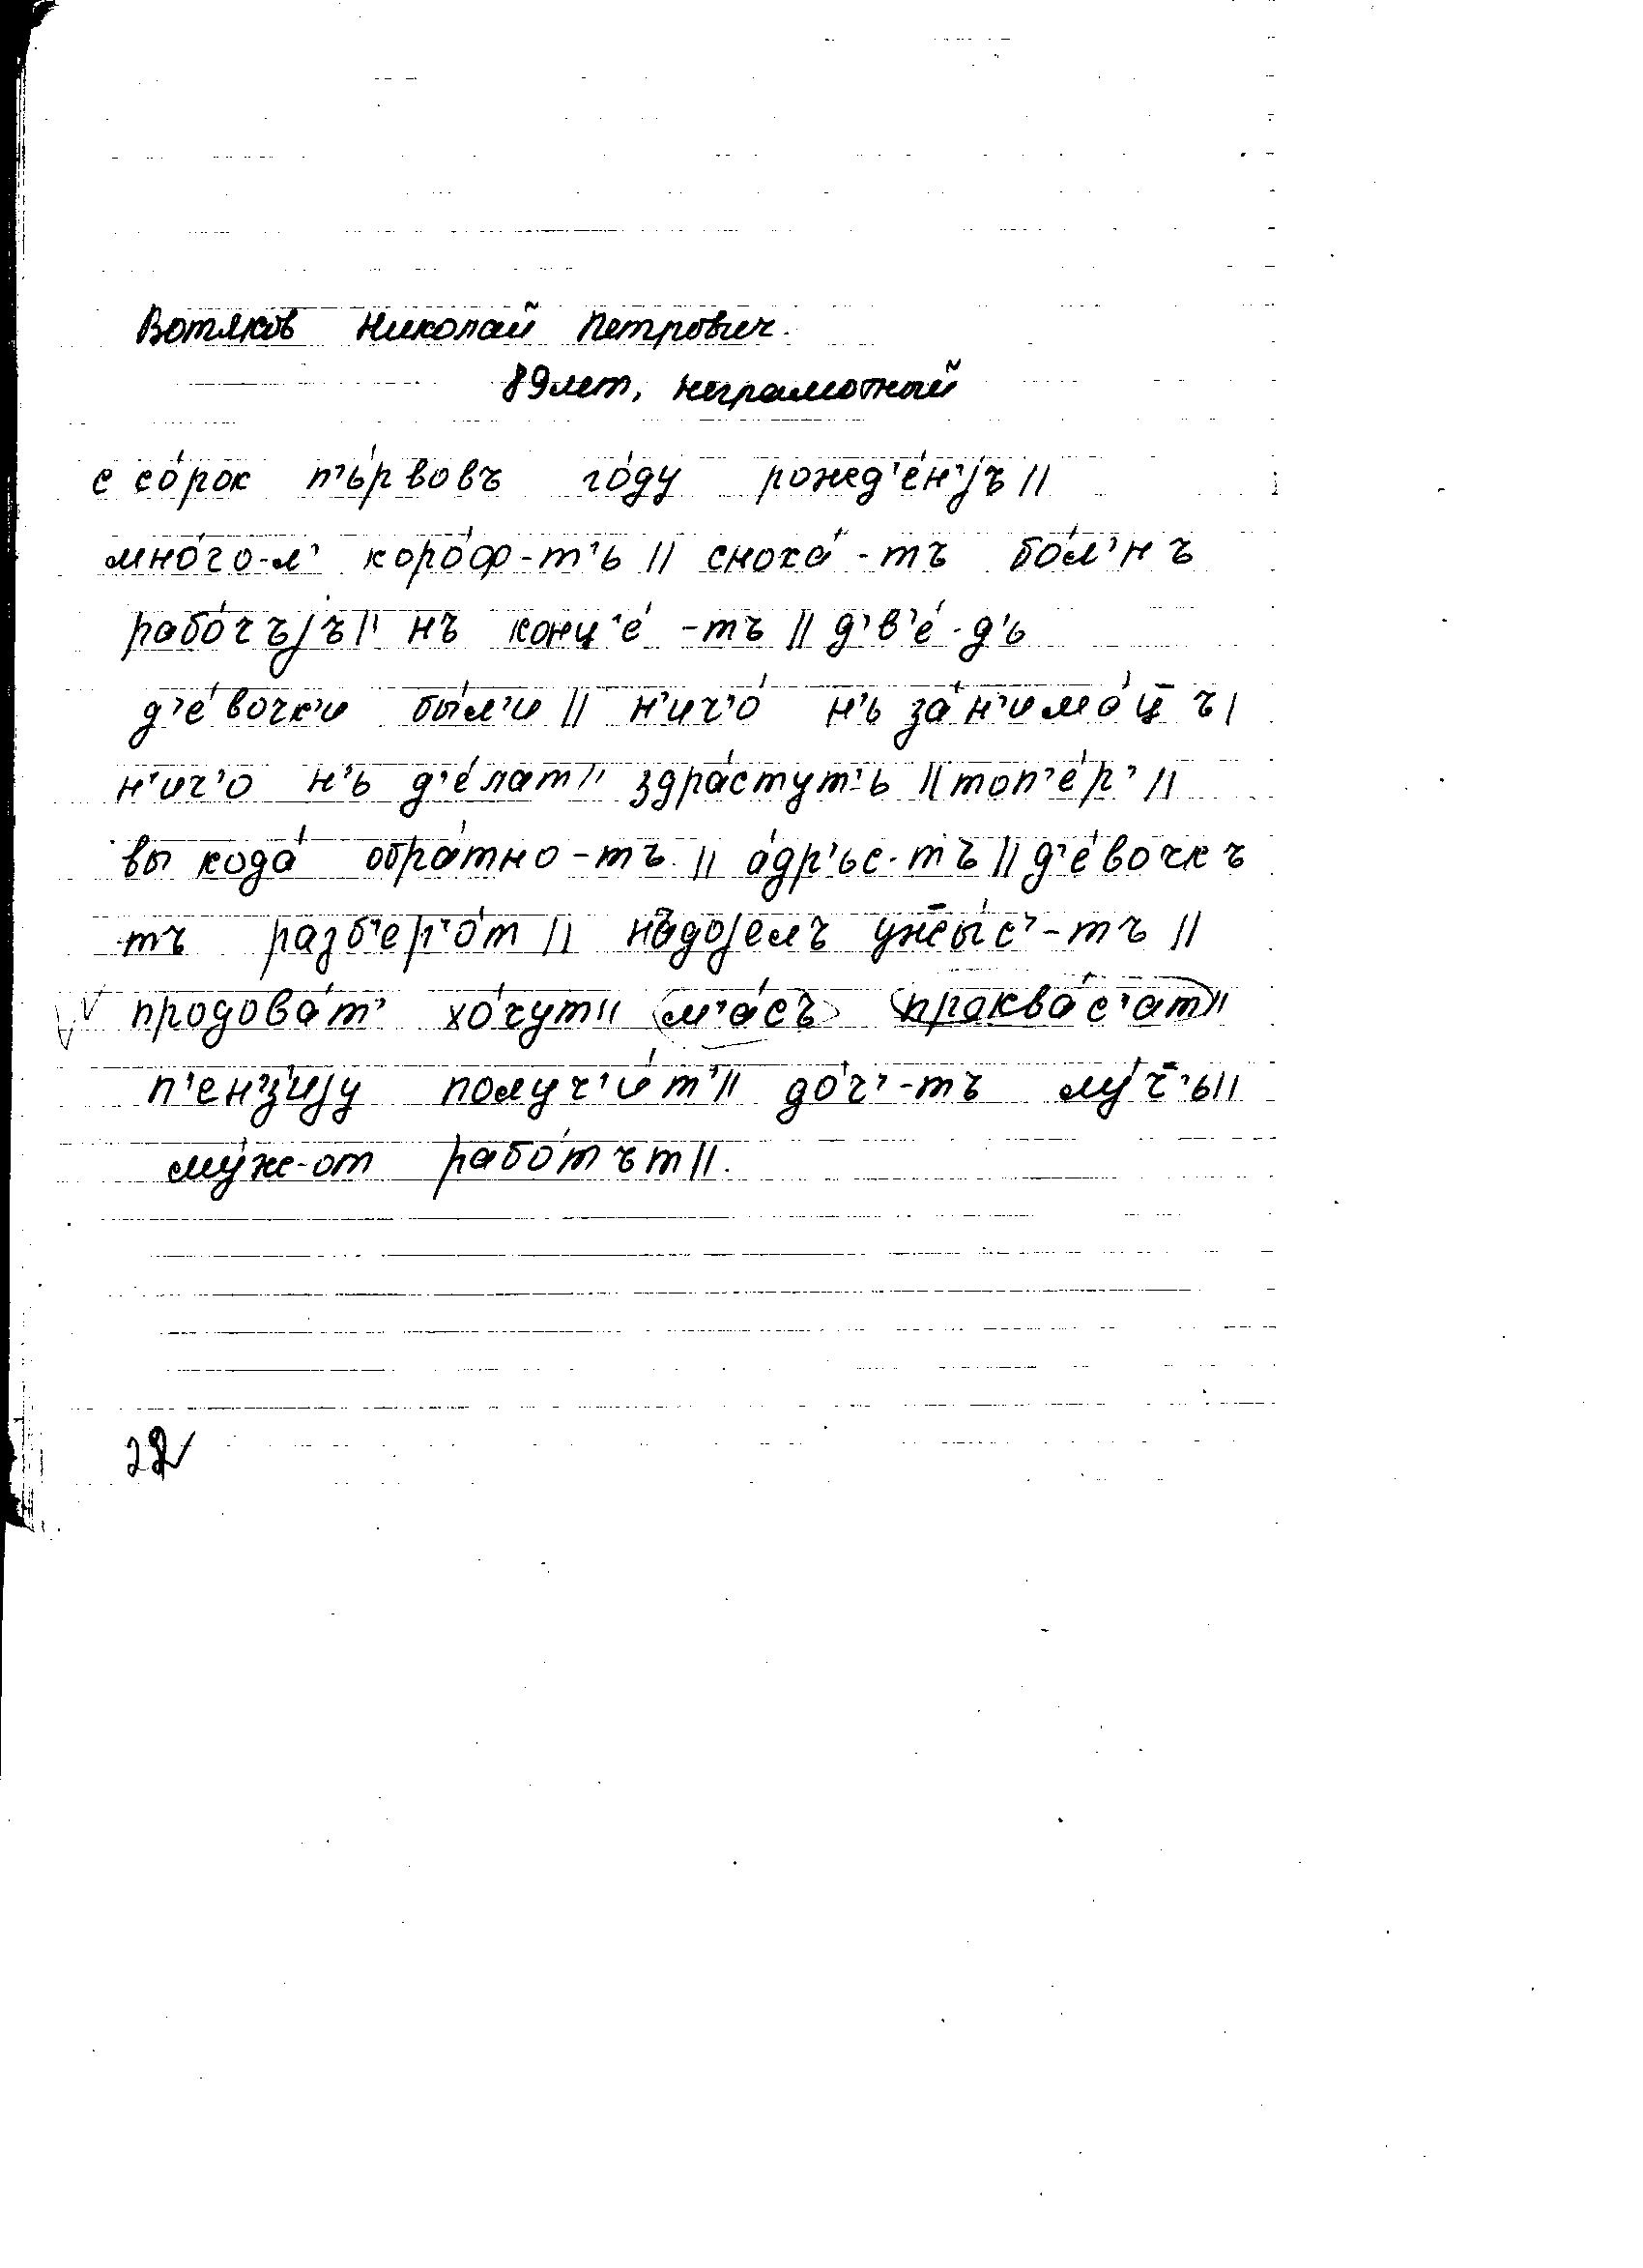 Вотяков Николай Петрович.
89 лет, неграмотный
с со́рок п'ь́рвовъ го́ду рожд'е́н'jъ //
мно́го-л' коро́ф-т'ь // сноха́-тъ бо́л'нъ
рабо́чъjъ // нъ конц'е́-тъ // д'в'е́-д'ь
д'е́вочк'и бы́л'и // н'ич'о́ н'ь за́н'има́ц̄ъ /
н'ич'о н'ь д'е́лат // здра́стут'ь // топ'е́р' //
вы кода́ обра́тно-тъ // а́др'ьс-тъ // д'е́вочкъ
-тъ разб'ер'о́т // на̄доjелъ уж̄ы́с'-тъ //
продова́т' хо́чут // м'а́съ праква́с'ат //
п'ен'з'иjу получ'и́т' // до́ч'-тъ лу́ч̄'ь //
му́ж-от рабо́тът //.
22